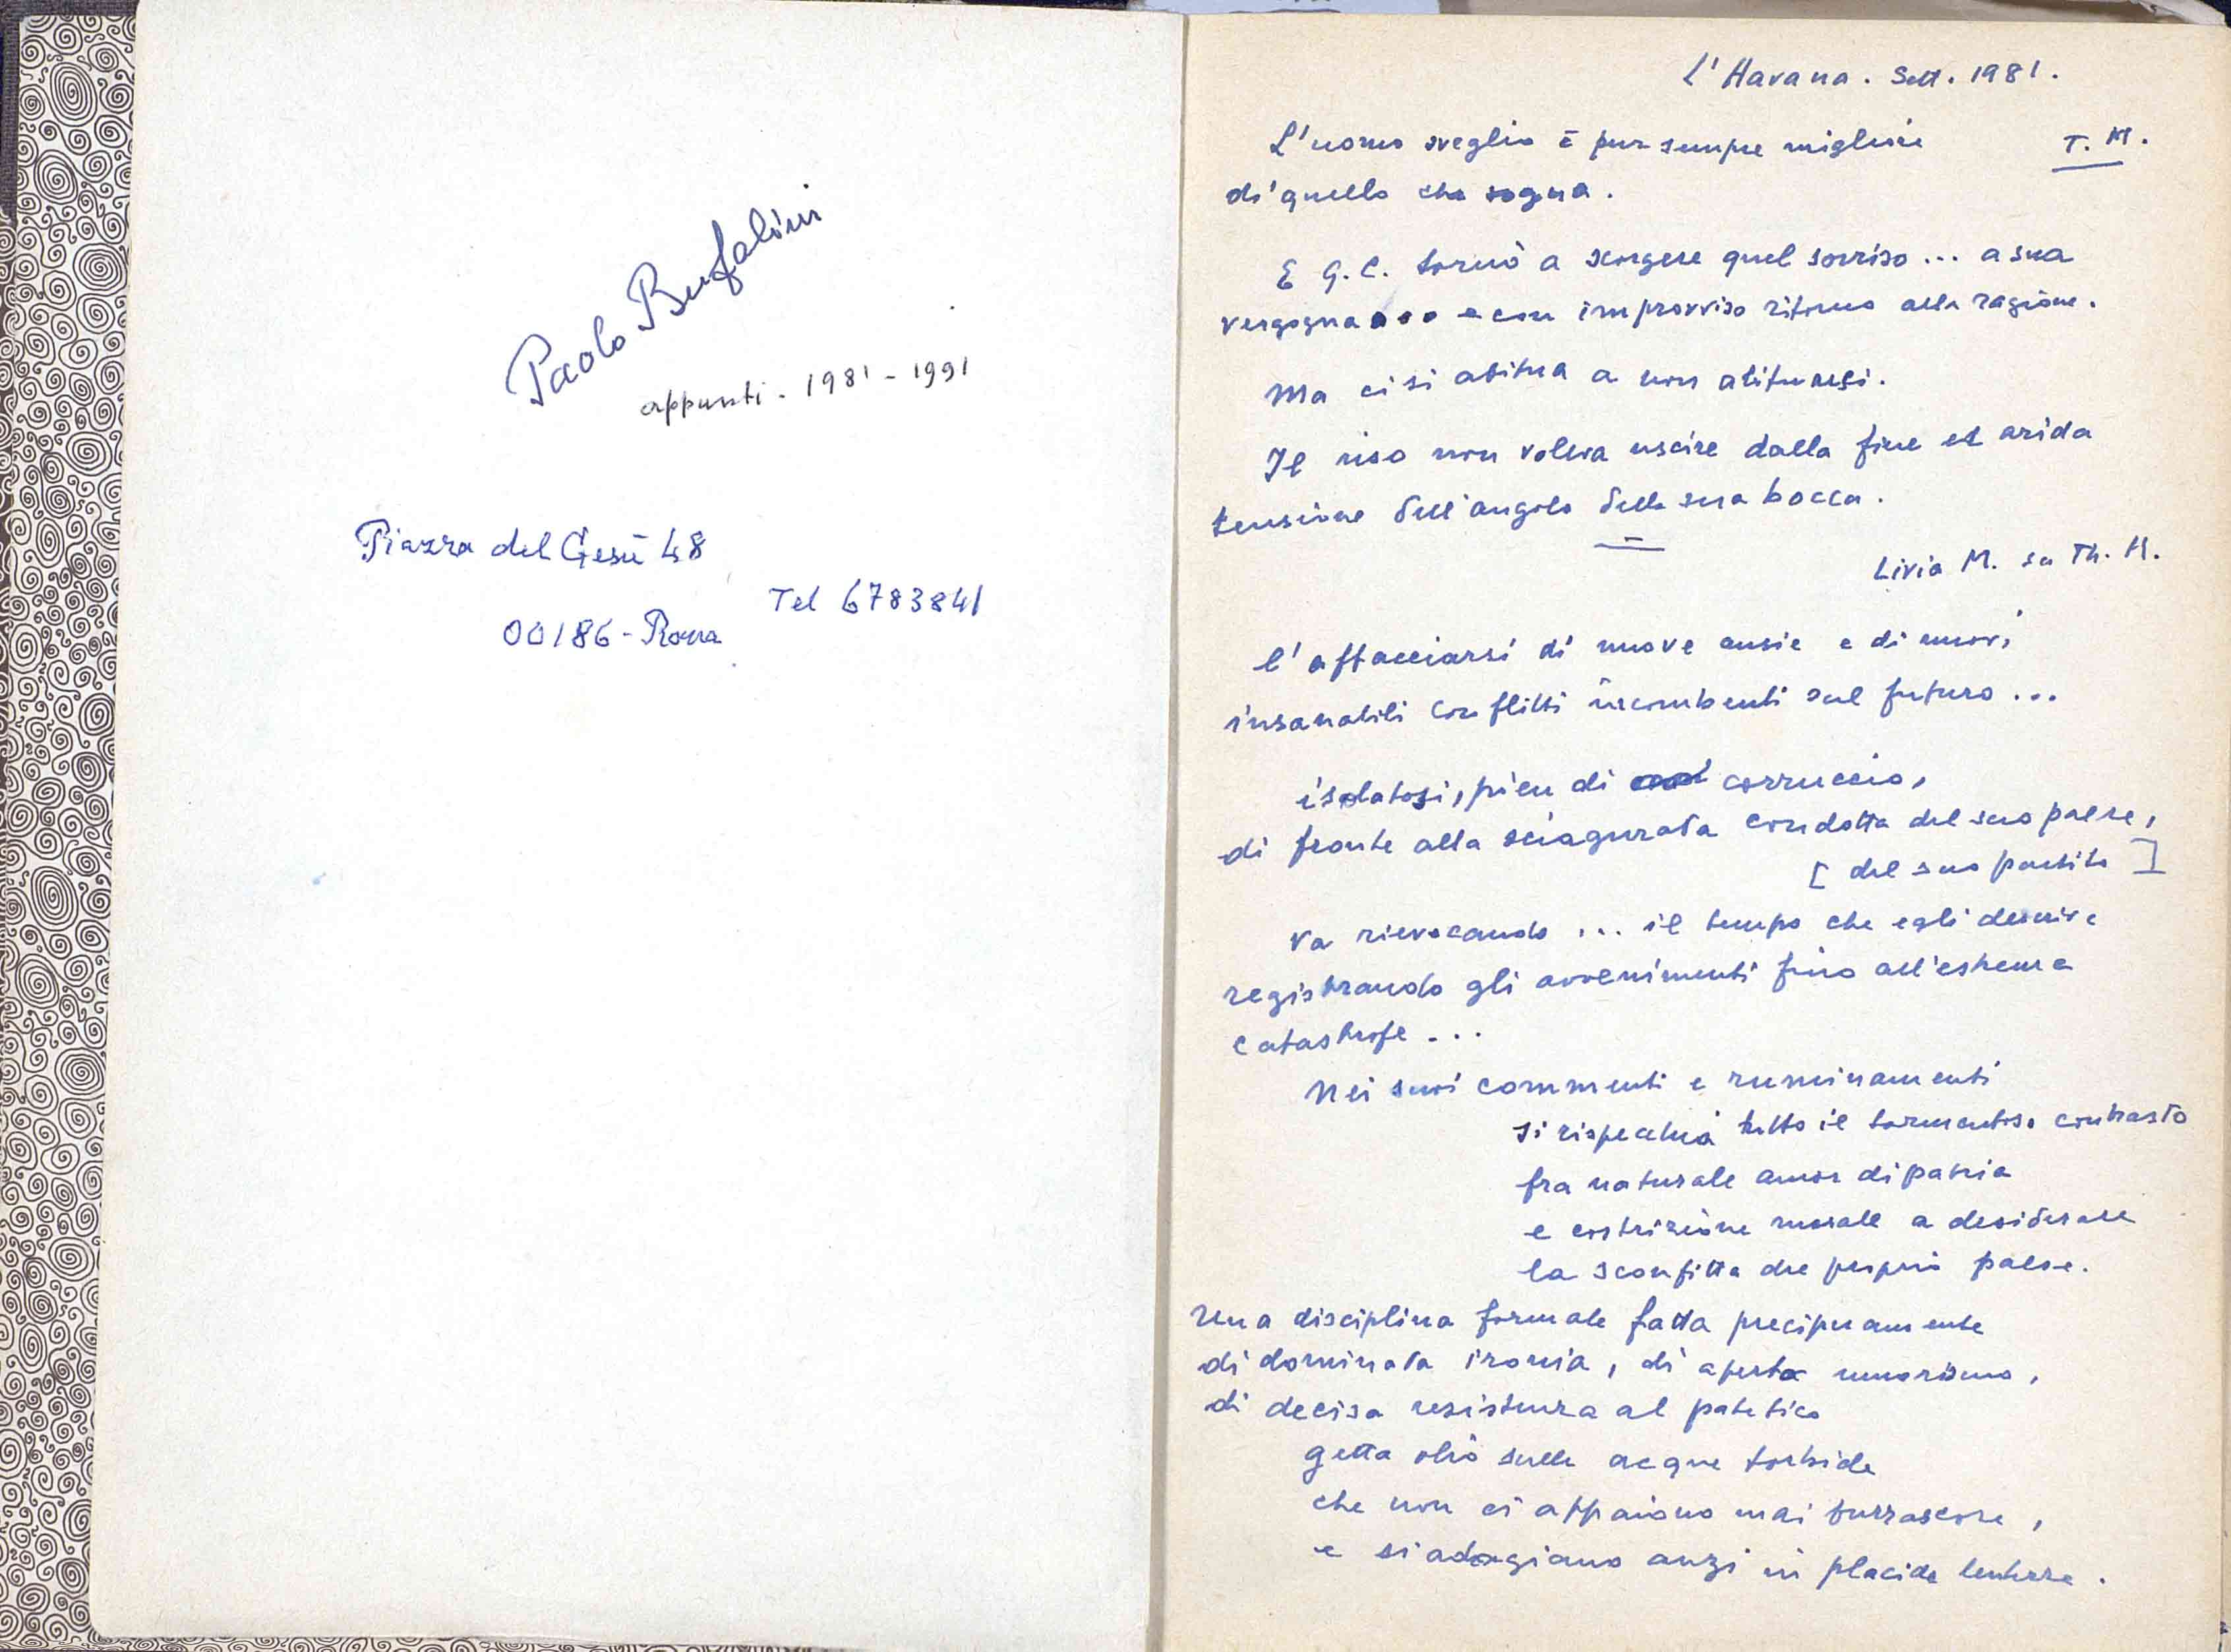 Paolo Bufalini
appunti - 1981 - 1991
Piazza del Gesù 48
Tel 6783841
00186 - Roma
L'Havana. Sett. 1981.
L'uomo sveglio è pur sempre migliore
T. M.
di quello che sogna.
E G. C. tornò a scorgere quel sorriso... a sua
vergogna... e con improvviso ritorno alla ragione.
Ma ci si abitua a non abituarsi.
Il riso non voleva uscire dalla fine ed arida
tensione dell'angolo della sua bocca.
Livia M. su Th. M.
l'affacciarsi di nuove ansie e di nuovi
insanabili conflitti incombenti sul futuro...
isolatosi, pien di corruccio,
di fronte alla sciagurata condotta del suo paese,
[ del suo partito ]
va rievocando ... il tempo che egli descrive
registrando gli avvenimenti fino all'estrema
catastrofe ...
Nei suoi commenti e ruminamenti
si rispecchia tutto il tormentoso contrasto
fra naturale amor di patria
e costrizione morale a desiderare
la sconfitta del proprio paese.
Una disciplina formale fatta precipuamente
di dominata ironia, di aperto umorismo,
di decisa resistenza al patetico
getta olio sulle acque torbide
che non ci appaiono mai burrascose,
e si adagiano anzi in placide lentezze.